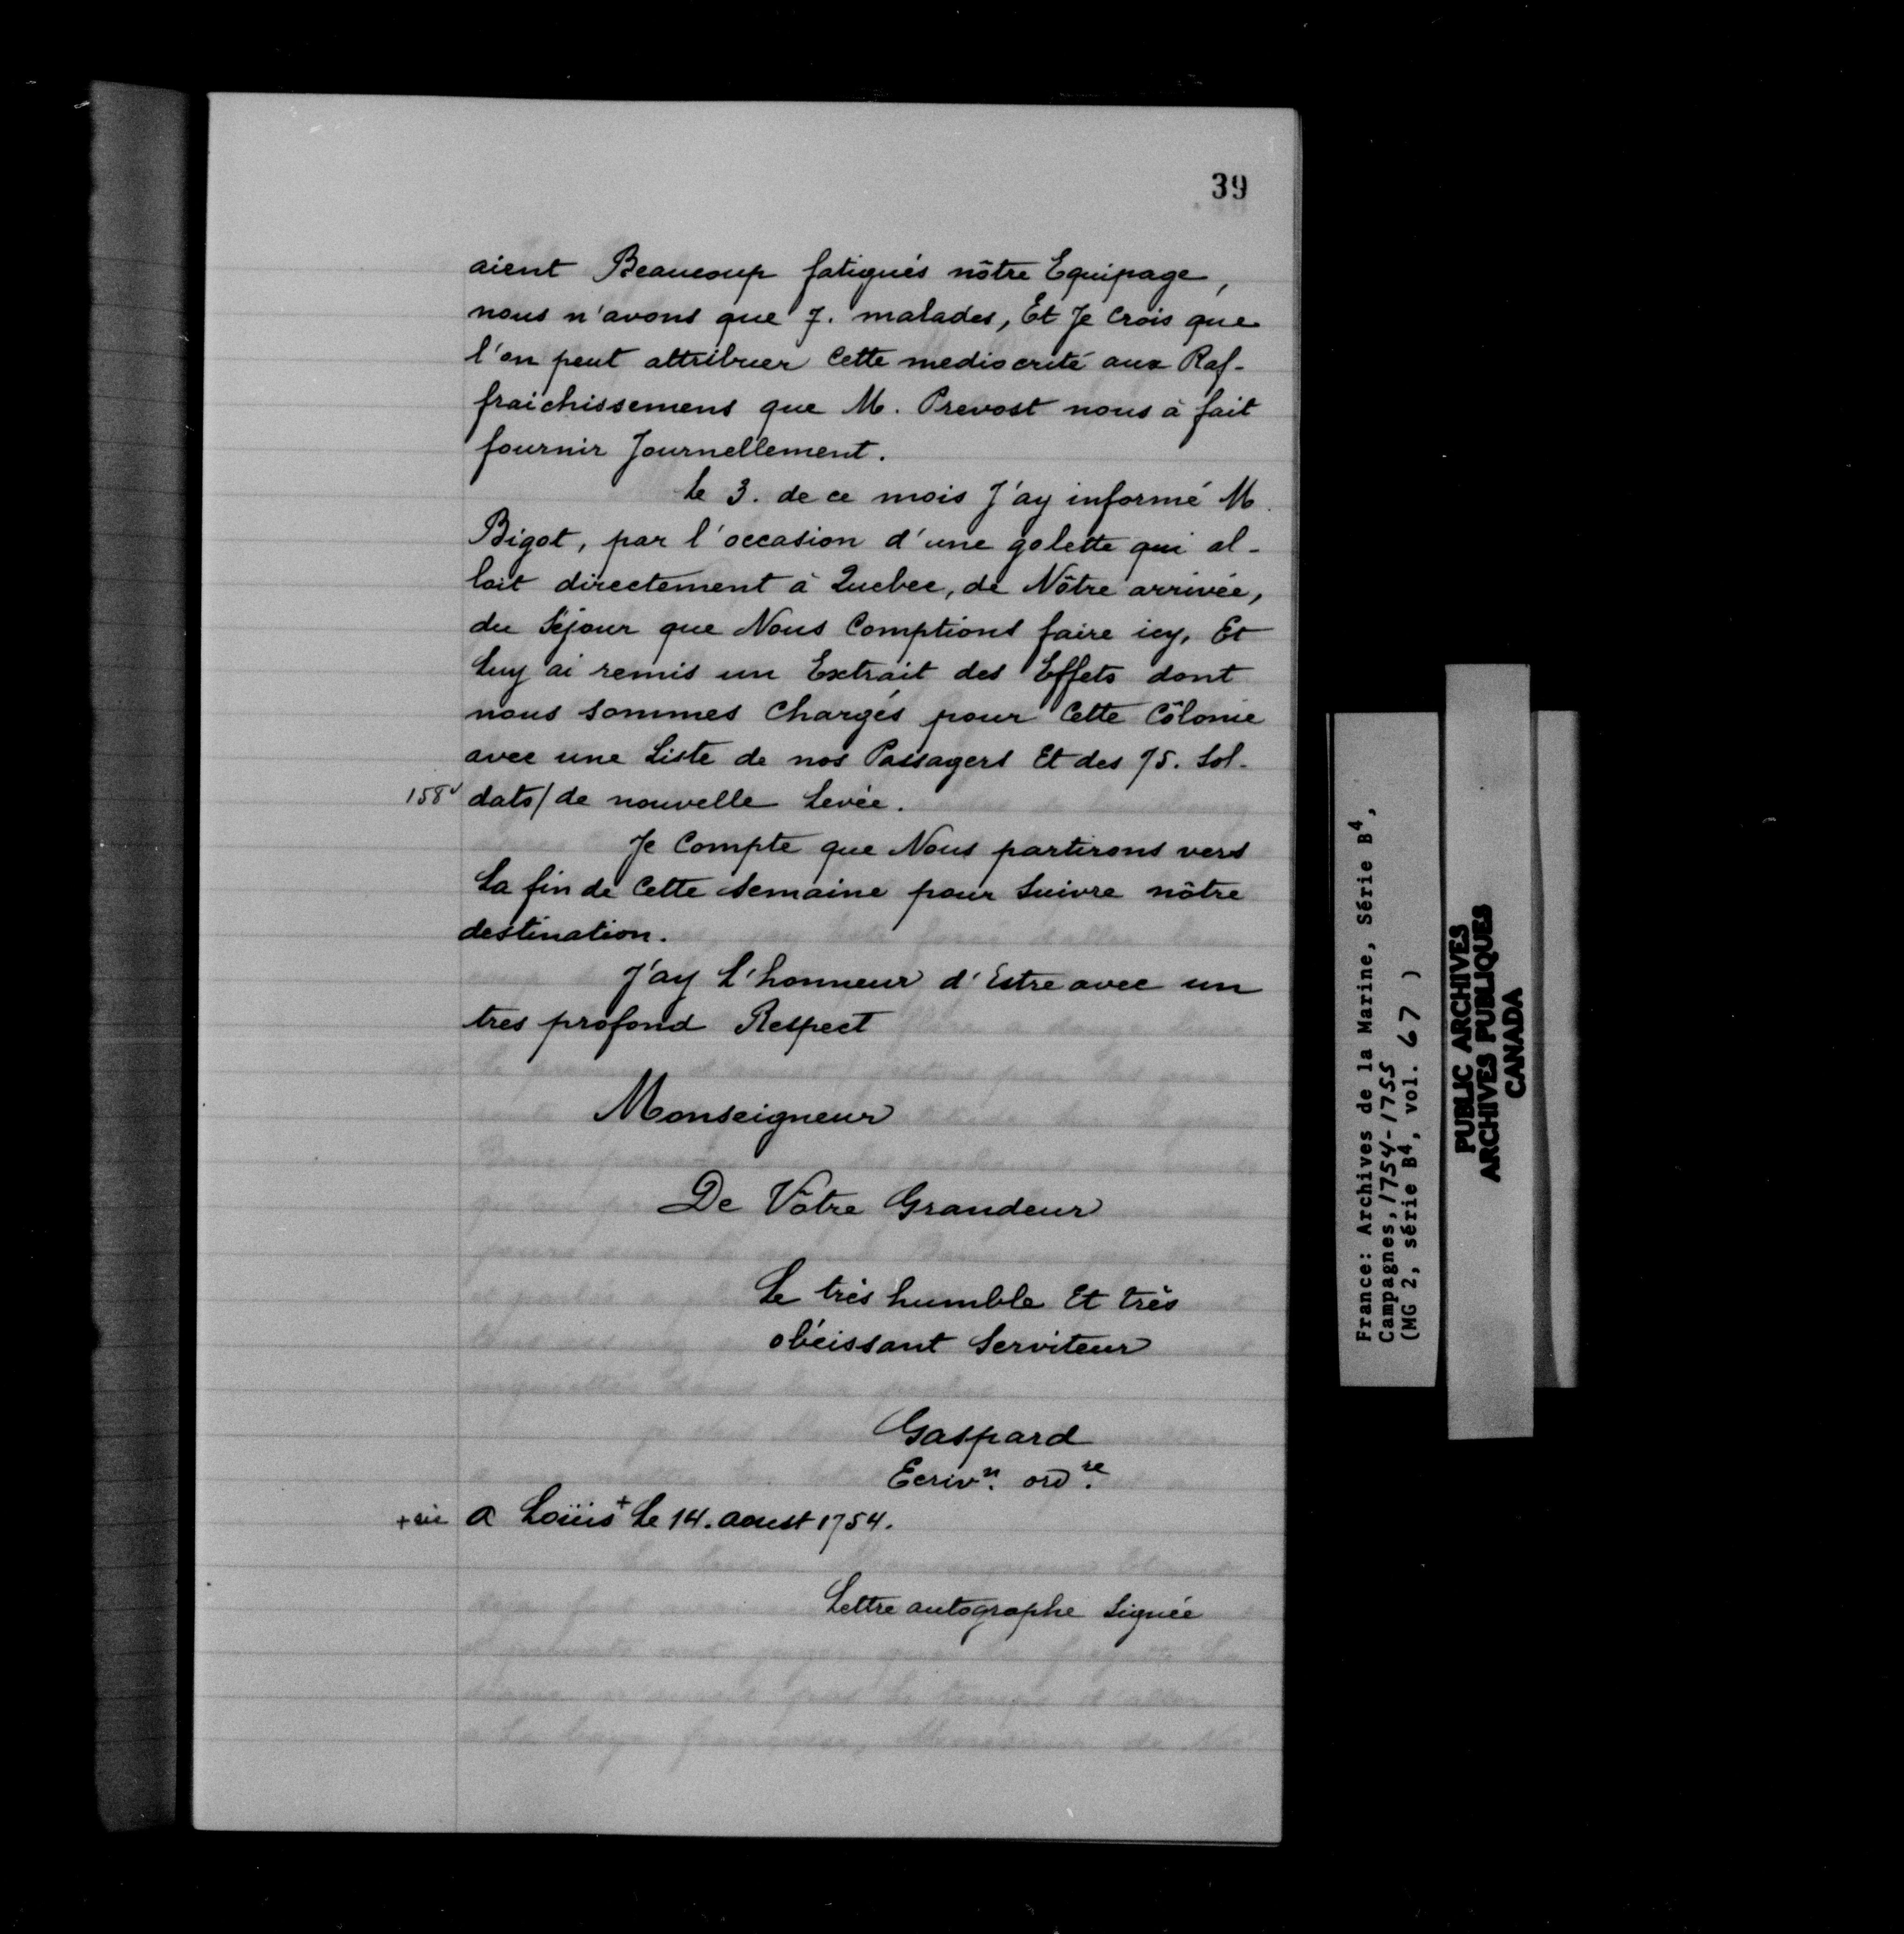 39
aient Beaucoup fatigués nôtre Equipage,
nous n'avons que 7. malades, Et Je Crois que
l'on peut attribuer Cette mediocrité aux Raf-
fraichissemens que M. Prevost nous à fait
fournir Journellement.
Le 3. de ce mois J'ay informé M.
Bigot, par l'occasion d'une golette qui al-
lait directement à Quebec, de Nôtre arrivée,
du Séjour que Nous Comptions faire icy, Et
Luy ai remis un Extrait des Effets dont
nous sommes Chargés pour Cette Côlonie
avec une Liste de nos Passagers Et des 75. Sol-
158v dats/ de nouvelle Levée.
Je Compte que Nous partirons vers
La fin de Cette Semaine pour Suivre nôtre
destination.
J'ay L'honneur d'Estre avec un
tres profond Respect
Monseigneur
De Vôtre Grandeur
Le très humble Et très
obéissant Serviteur
Gaspard
Ecriv.n ord.re
+ sic A Loüis+ Le 14. aoust 1754.
Lettre autographe Signée
France: Archives de la Marine, Série B4,
Campagnes, 1754-1755
(MG 2, série B4, vol. 67 )
PUBLIC ARCHIVES
ARCHIVES PUBLIQUES
CANADA